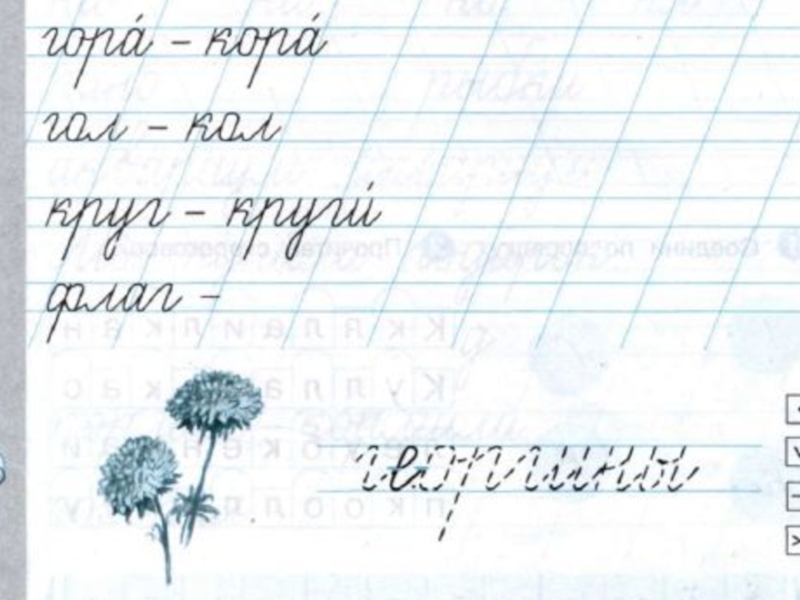 гора́ – кора́
гол – кол
круг – круги́
флаг –
георгины